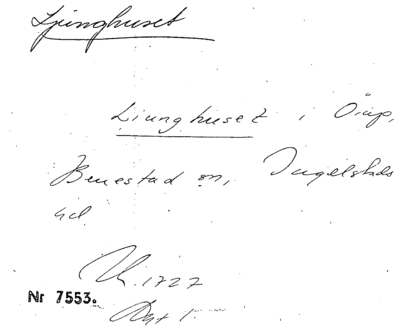 Ljunghuset
Ljunghuset i Öiup,
Benestad sn, Ingelstads
hd
1727
Nr 7553.